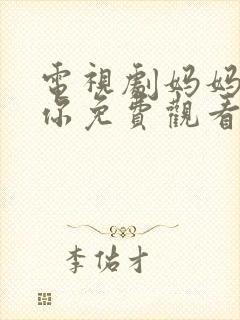 電視劇妈妈
你免費觀看
李佑才